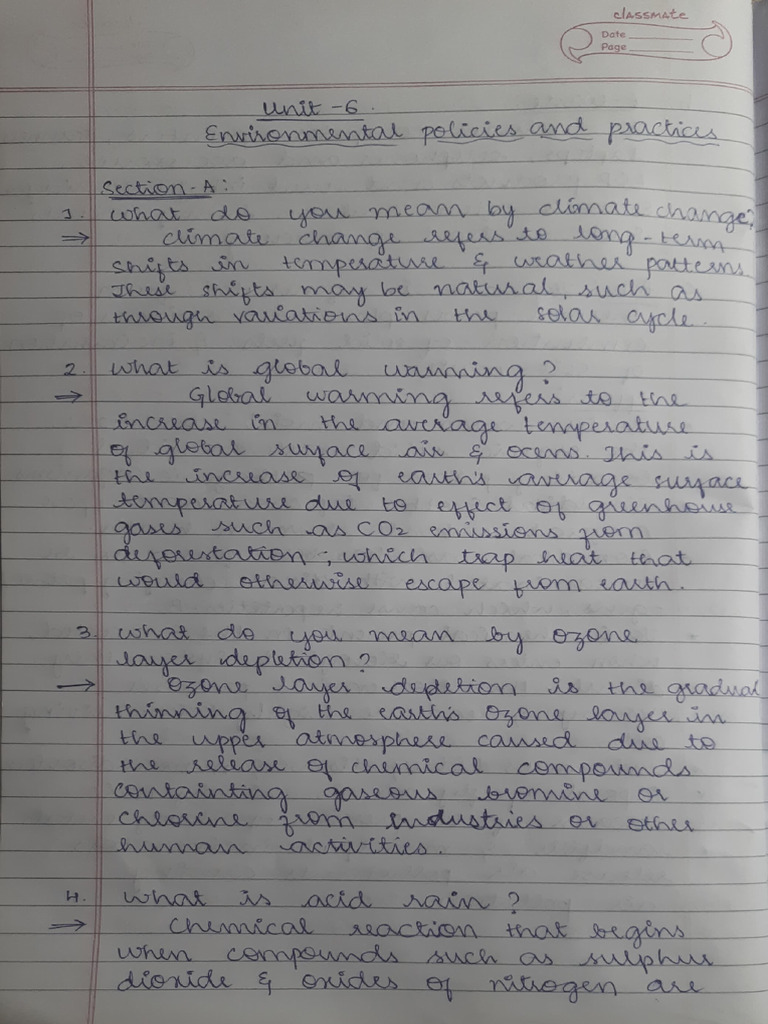 classmate
Date
Page
Unit - 6.
Environmental policies and practices
Section-A:
1. What do you mean by climate change?
⇒ Climate change refers to long-term
shifts in temperature & weather patterns.
These shifts may be natural, such as
through variations in the solar cycle.
2. What is global warming?
⇒ Global warming refers to the
increase in the average temperature
of global surface air & ocens. This is
the increase of earth's average surface
temperature due to effect of greenhouse
gases such as CO2 emissions from
deforestation; which trap heat that
would otherwise escape from earth.
3. What do you mean by ozone
layer depletion?
→ Ozone layer depletion is the gradual
thinning of the earth's ozone layer in
the upper atmosphere caused due to
the release of chemical compounds
containting gaseous bromine or
chlorine from industries or other
human activities.
4. What is acid rain?
⇒ Chemical reaction that begins
when compounds such as sulphur
dioxide & oxides of nitrogen are